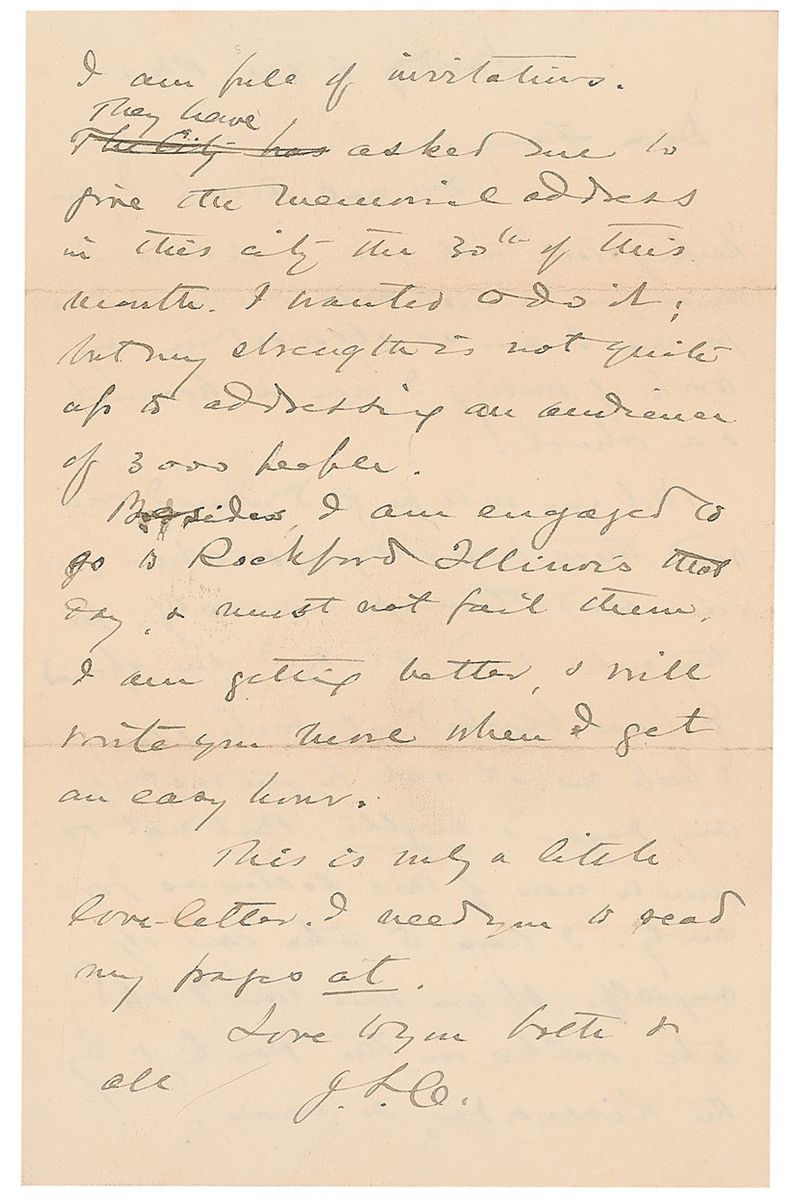 I am full of invitations.
They have
The City has asked me to
give the Memorial address
in this city the 30th of this
month. I wanted to do it;
but my strength is not quite
up to addressing an audience
of 3000 people.
Besides, I am engaged to
go to Rockford Illinois that
day, & must not fail them.
I am getting better, & will
write you more when I get
an easy hour.
This is only a little
love-letter. I need you to read
my pages at.
Love to you both &
all J.L.C.